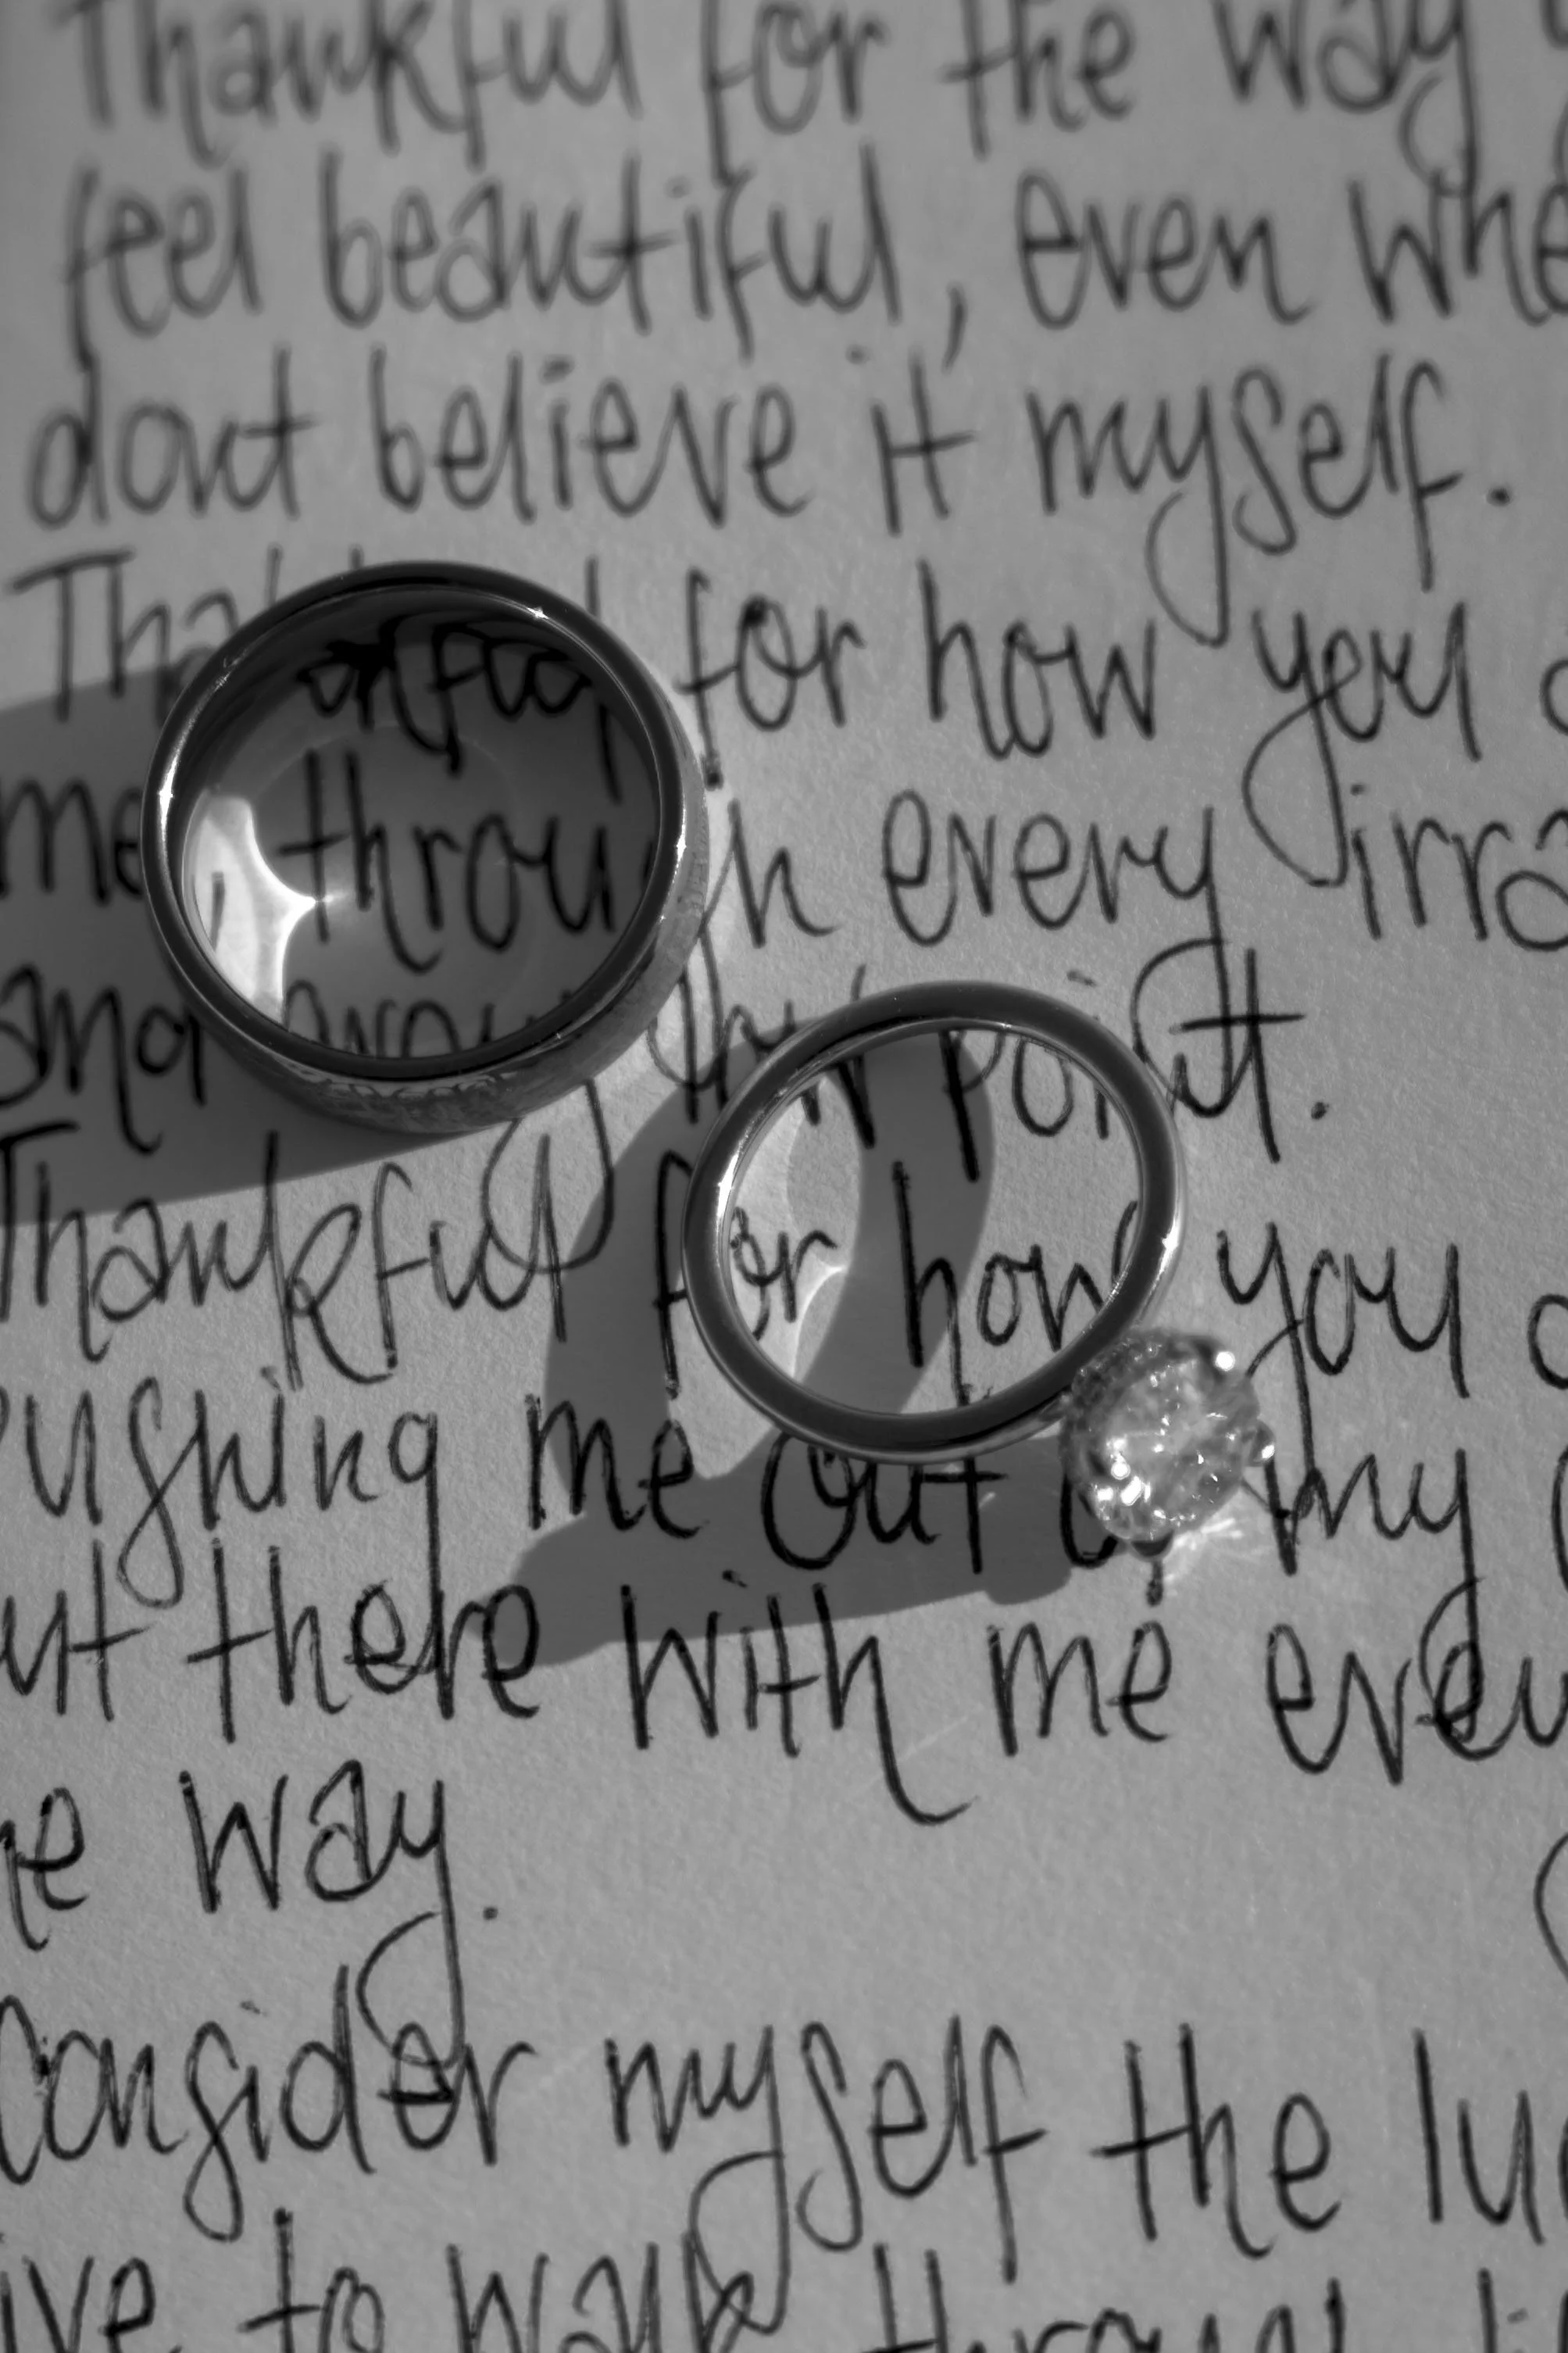 Thankful for the way
feel beautiful, even whe
don't believe it myself.
Thankful for how you
me, through every irra
and every low point.
Thankful for how you
pushing me out of my
ut there with me every
he way.
consider myself the lu
ive to walk through li